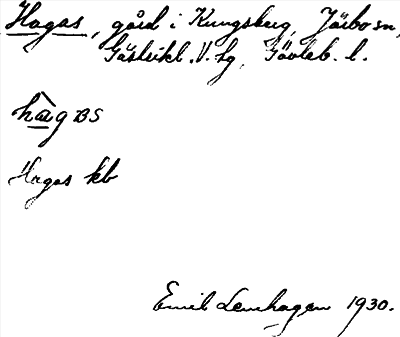 Hagas, gård i Kungsberg, Järbo sn,
Gästrikl. V. hg, Gävleb. l.
hâgBS
Hagas kb
Emil Lenhagen 1930.